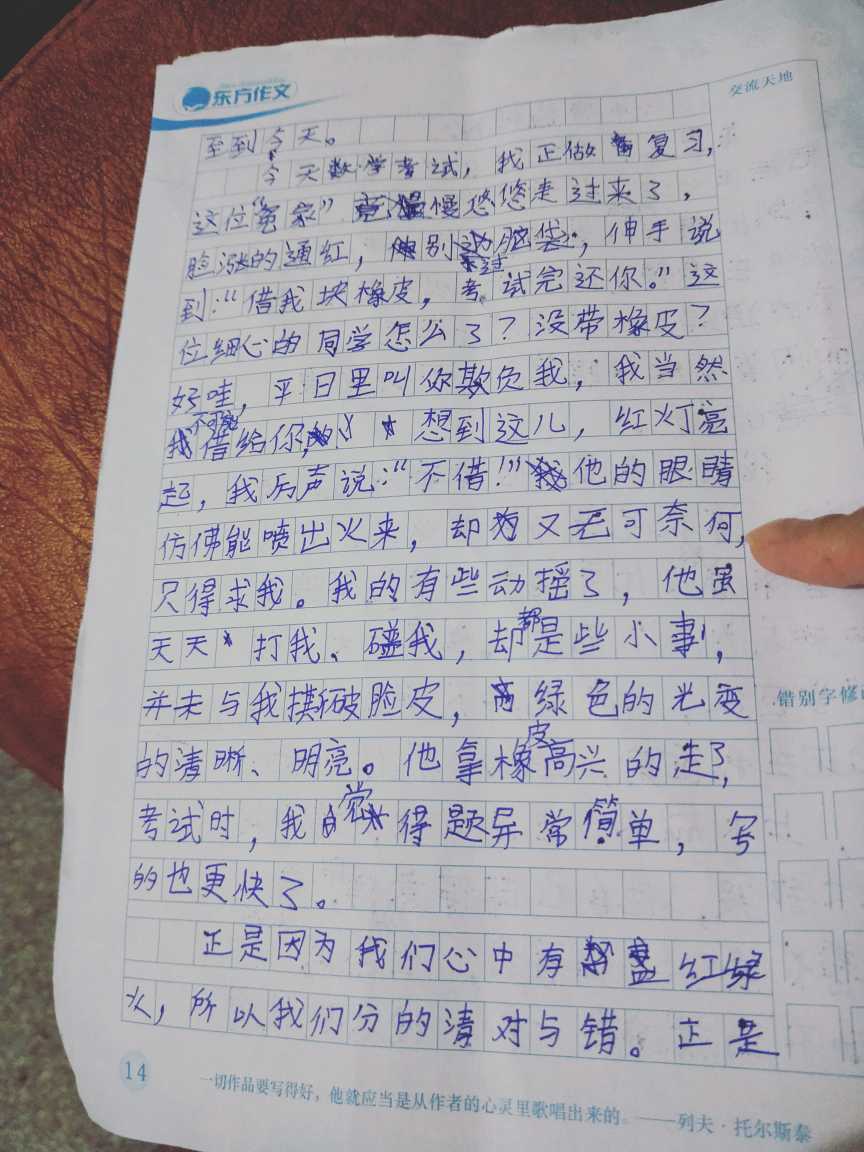 东方作文
交流天地
至到今天。
今天数学考试，我正做复习，
这位“冤家”竟慢悠悠走过来了，
脸涨的通红，别过脑袋，伸手说
到：“借我块橡皮，考试完还你。”这
位细心的同学怎么了？没带橡皮？
好哇，平日里叫你欺负我，我当然
不可能借给你，想到这儿，红灯亮
起，我厉声说：“不借！”他的眼睛
仿佛能喷出火来，却又无可奈何，
只得求我。我的有些动摇了，他虽
天天打我、碰我，却都是些小事，
并未与我撕破脸皮，绿色的光变
的清晰、明亮。他拿橡皮高兴的走了，
考试时，我觉得题异常简单，写
的也更快了。
正是因为我们心中有盏红绿
火，所以我们分的清对与错。正是
错别字修
14
一切作品要写得好，他就应当是从作者的心灵里歌唱出来的。——列夫·托尔斯泰